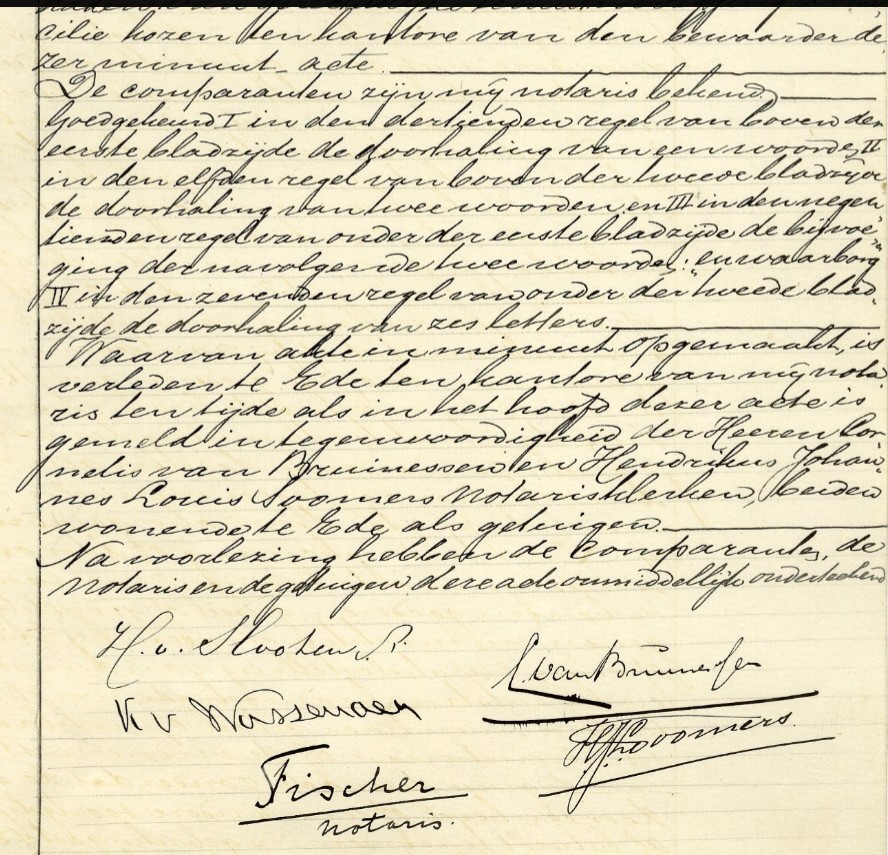 cilie kozen ten kantore van den bewaarder de-
zer minuut-acte.
De comparanten zijn mij notaris bekend.
Goedgekeurd I in den dertienden regel van boven der
eerste bladzijde de doorhaling van een woord, II
in den elfden regel van boven der tweede bladzijde
de doorhaling van twee woorden en III in den negen-
tienden regel van onder der eerste bladzijde de bijvoe-
ging der navolgende twee woorden: "en waarborg"
IV in den zevenden regel van onder der tweede blad-
zijde de doorhaling van zes letters.
Waarvan akte in minuut opgemaakt, is
verleden te Ede ten kantore van mij nota-
ris ten tijde als in het hoofd dezer acte is
gemeld in tegenwoordigheid der Heeren Cor-
nelis van Bruinessen en Hendrikus Johan-
nes Louis Soomers Notarisklerken, beiden
wonende te Ede als getuigen.
Na voorlezing hebben de comparanten, de
Notaris en de getuigen deze acte onmiddellijk onderteekend
H. v. Slooten
C. van Bruinessen
K v Wassenaer
HJL Soomers
Fischer
notaris.